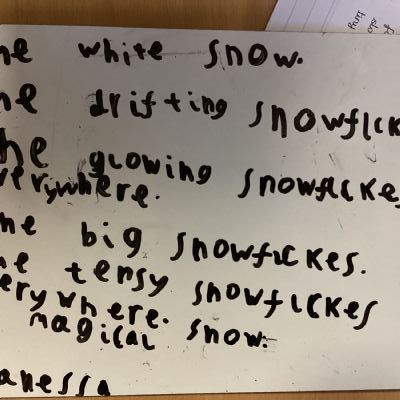 he white snow.
he drifting snowflck
he glowing snowflckes
verywhere.
he big snowfickes.
he tensy snowflckes
erywhere.
magical snow.
anessa